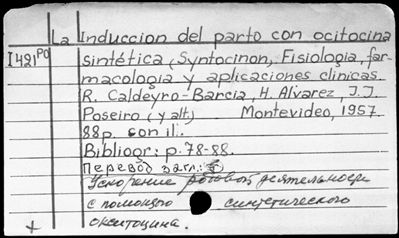 La Induccion del parto con ocitocina
I421ро sintética (Syntocinon, Fisiologia, far-
macologia y aplicaciones clinicas.
R. Caldeyro-Barcia, H. Alvarez, J.J.
Poseiro (y alt.) Montevideo, 1957.
88p. con il.
Bibliogr: p. 78-88.
Перевод загл.:
Ускорение родовой деятельности
с помощью синтетического
окситоцина.